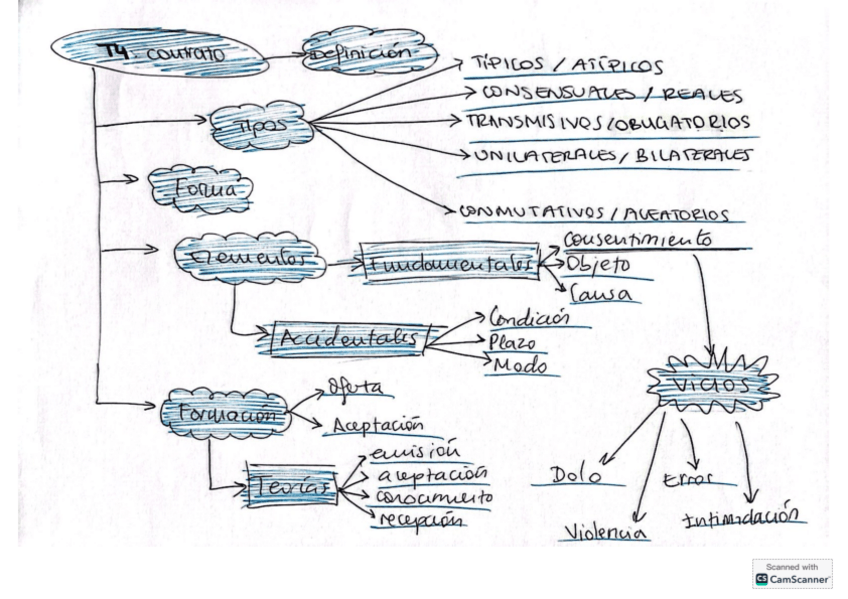 T4. contrato
Definición
Tipos
TÍPICOS / ATÍPICOS
CONSENSUALES / REALES
TRANSMISIVOS/OBLIGATORIOS
UNILATERALES/ BILATERALES
CONMUTATIVOS / ALEATORIOS
Forma
Elementos
Fundamentales
Consentimiento
Objeto
Causa
Accidentales
Condición
Plazo
Modo
VICIOS
Dolo
Violencia
Error
Intimidación
Formación
Oferta
Aceptación
Teorías
emisión
aceptación
conocimiento
recepción
Scanned with
CS CamScanner